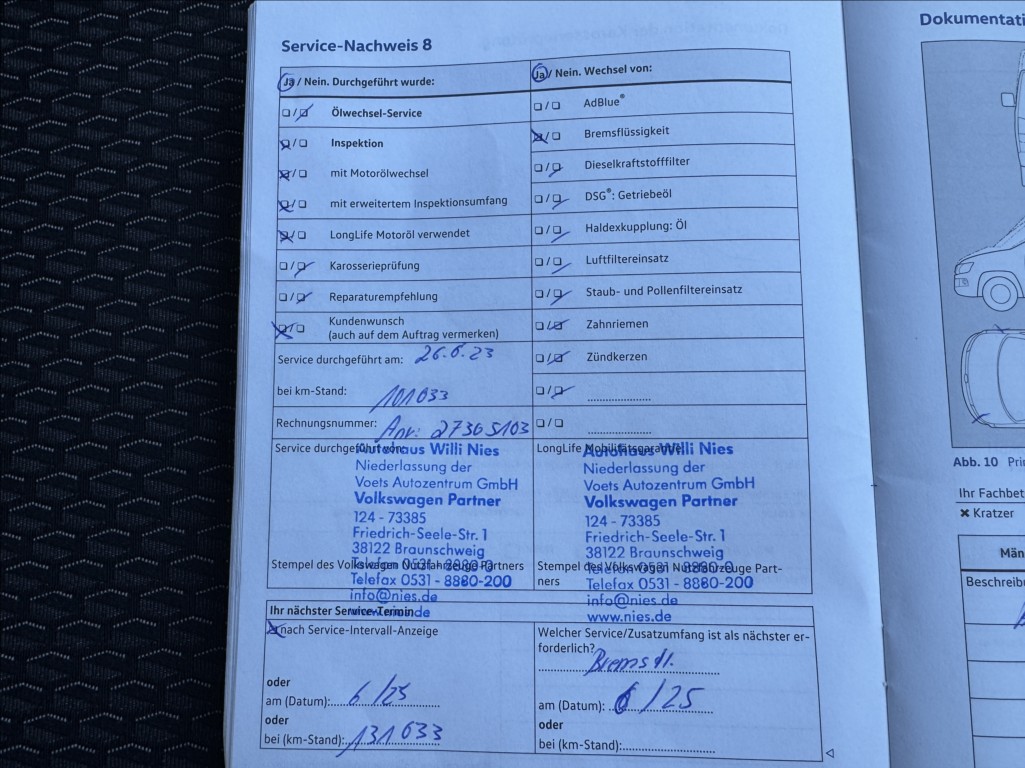 Service-Nachweis 8
Ja / Nein. Durchgeführt wurde:
Ölwechsel-Service
Inspektion
mit Motorölwechsel
mit erweitertem Inspektionsumfang
LongLife Motoröl verwendet
Karosserieprüfung
Reparaturempfehlung
Kundenwunsch
(auch auf dem Auftrag vermerken)
Service durchgeführt am: 26.6.23
bei km-Stand: 101033
Rechnungsnummer: Anr: 27305103
Service durchgeführt von:
Autohaus Willi Nies
Niederlassung der
Voets Autozentrum GmbH
Volkswagen Partner
124 - 73385
Friedrich-Seele-Str. 1
38122 Braunschweig
Telefon 0531 - 8880-0
Stempel des Volkswagen Nutzfahrzeuge Partners
Telefax 0531 - 8880-200
info@nies.de
www.nies.de
Ja / Nein. Wechsel von:
AdBlue®
Bremsflüssigkeit
Dieselkraftstofffilter
DSG®: Getriebeöl
Haldexkupplung: Öl
Luftfiltereinsatz
Staub- und Pollenfiltereinsatz
Zahnriemen
Zündkerzen
LongLife Mobilitätsgarantie
Autohaus Willi Nies
Niederlassung der
Voets Autozentrum GmbH
Volkswagen Partner
124 - 73385
Friedrich-Seele-Str. 1
38122 Braunschweig
Telefon 0531 - 8880-0
Stempel des Volkswagen Nutzfahrzeuge Part-
ners
Telefax 0531 - 8880-200
info@nies.de
www.nies.de
Ihr nächster Service-Termin
nach Service-Intervall-Anzeige
oder
am (Datum): 6/25
oder
bei (km-Stand): 131033
Welcher Service/Zusatzumfang ist als nächster er-
forderlich?
Bremsfl.
am (Datum): 6/25
oder
bei (km-Stand):
Dokumentati
Abb. 10 Pri
Ihr Fachbet
✖ Kratzer
Män
Beschreibu